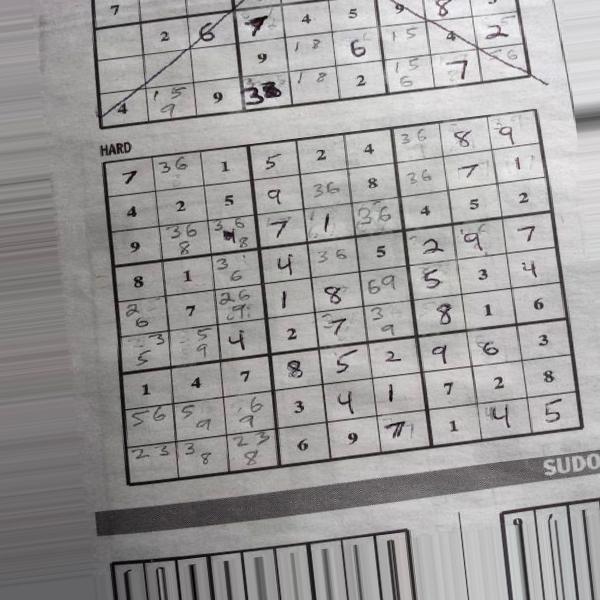 7
2 6 7 4 5 9 8
9 18 6 15 4 2
4 159 9 38 18 2 156 7 56
HARD
7 36 1 5 2 4 36 8 9
4 2 5 9 36 8 36 7 1
9 368 368 7 1 36 4 5 2
8 1 36 4 36 5 2 9 7
26 7 269 1 8 69 5 3 4
35 59 4 2 7 39 8 1 6
1 4 7 8 5 2 9 6 3
56 59 69 3 4 1 7 2 8
23 38 238 6 9 7 1 4 5
SUDO